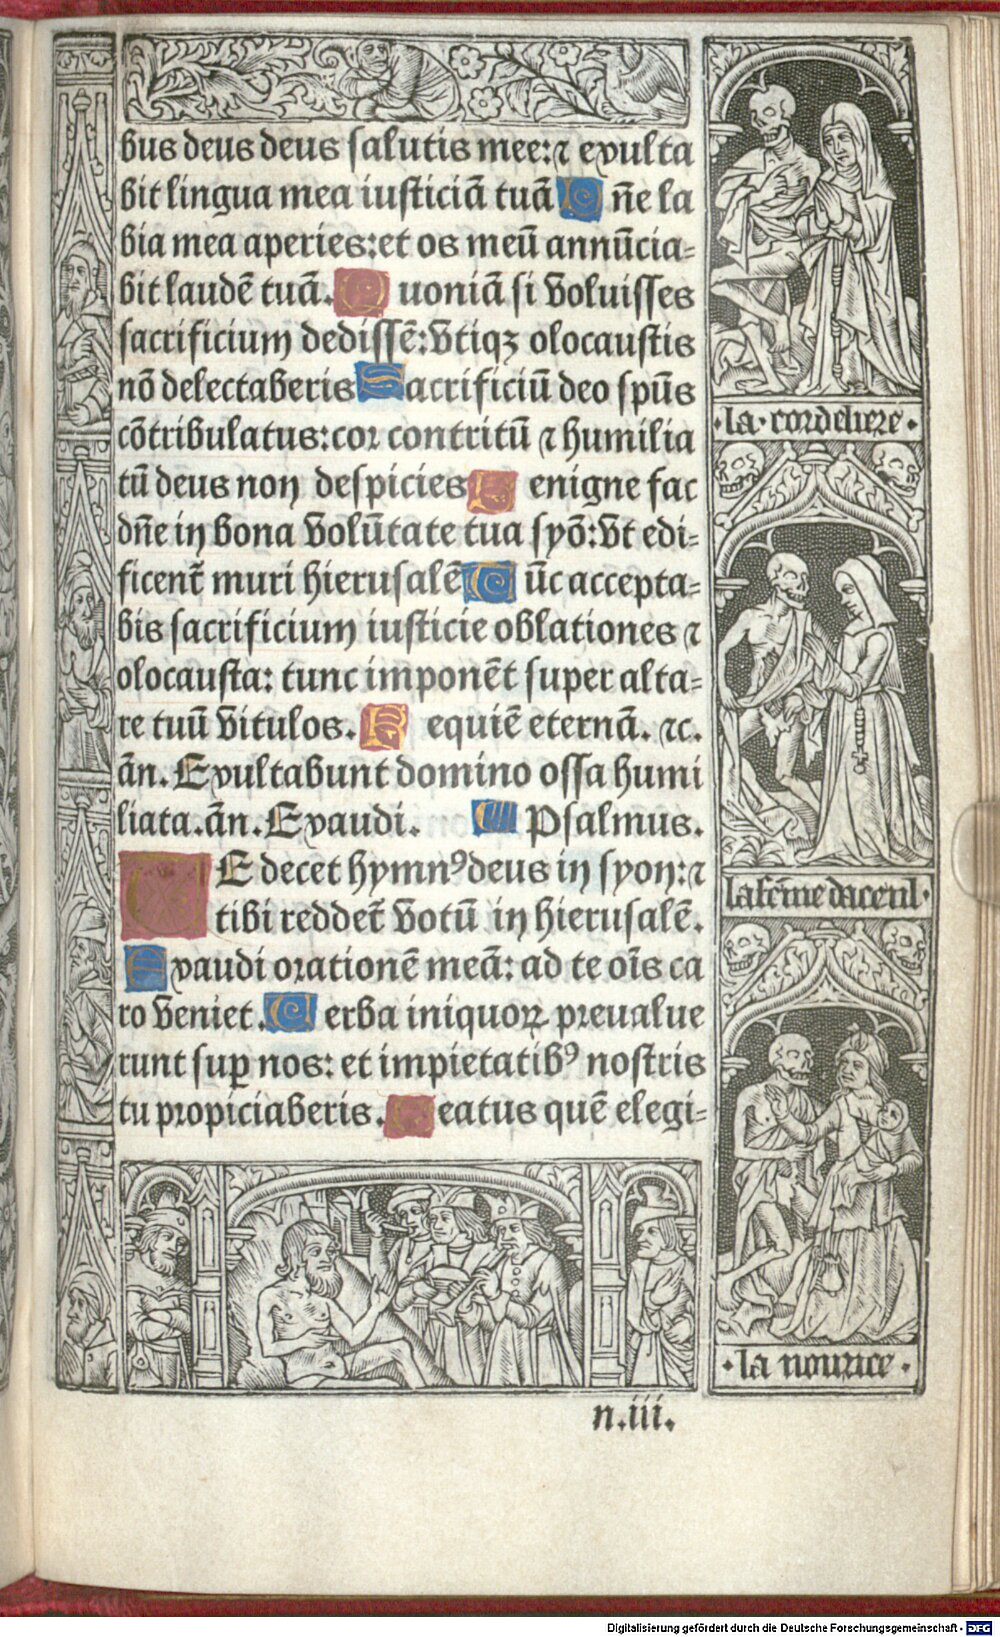 bus deus deus salutis mee: ⁊ exulta
bit lingua mea iusticiā tuā D ñe la
bia mea aperies: et os meū annūcia-
bit laudē tuā. Q uoniā si voluisses
sacrificium dedissē: vtiqꝫ olocaustis
nō delectaberis Sacrificiū deo spūs
cōtribulatus: cor contritū ⁊ humilia
tū deus non despicies B enigne fac
dñe in bona volūtate tua syō: vt edi-
ficent̄ muri hierusalē T ūc accepta-
bis sacrificium iusticie oblationes ⁊
olocausta: tunc imponēt super alta-
re tuū vitulos. R equiē eternā. ⁊c.
ān. Exultabunt domino ossa humi
liata. ān. Exaudi. Psalmus.
T E decet hymnꝰ deus in syon: ⁊
tibi reddet̄ votū in hierusalē.
Exaudi orationē meā: ad te oīs ca
ro veniet. V erba iniquoꝝ preualue
runt suꝑ nos: et impietatibꝰ nostris
tu propiciaberis. Beatus quē elegi-
n.iii.
·la·cordeliere·
la fēme daceul·
·la nourice·
Digitalisierung gefördert durch die Deutsche Forschungsgemeinschaft - DFG